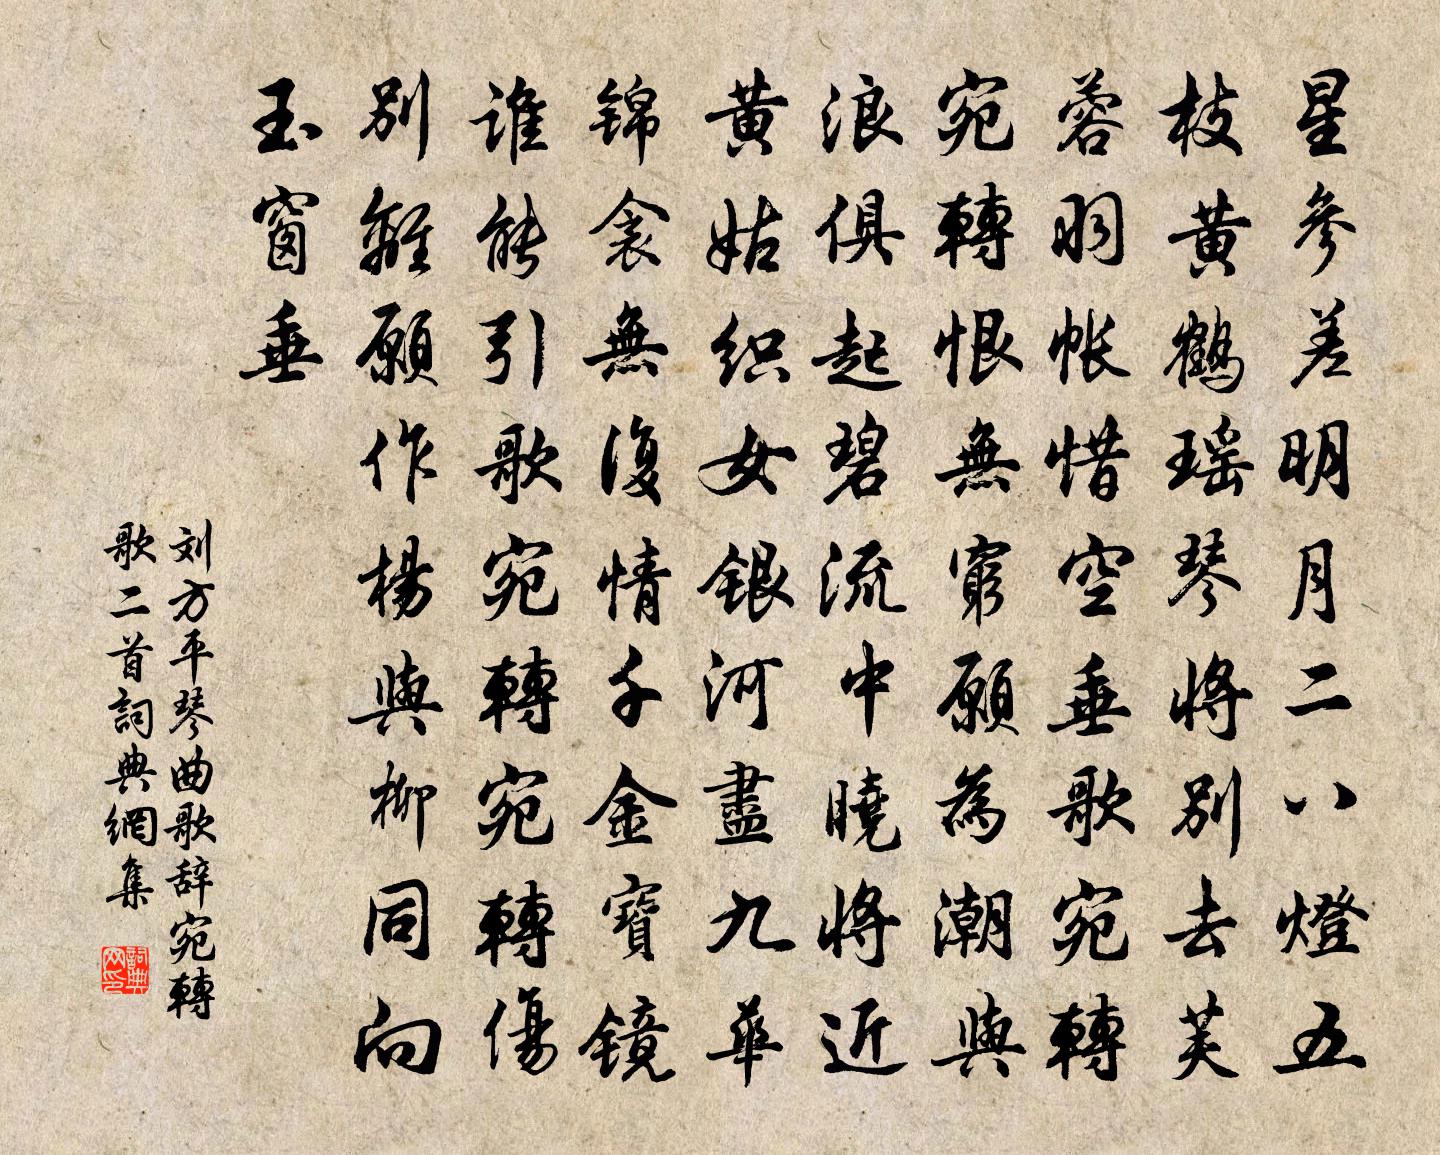 星參差明月二八燈五
枝黄鶴瑶琴將别去芙
蓉羽帐惜空垂歌宛轉
宛轉恨無窮願為潮與
浪俱起碧流中曉將近
黄姑织女银河盡九華
锦衾無復情千金寶镜
谁能引歌宛轉宛轉傷
别離願作楊與柳同向
玉窗垂
刘方平琴曲歌辞宛轉
歌二首詞典網集
詞典网印